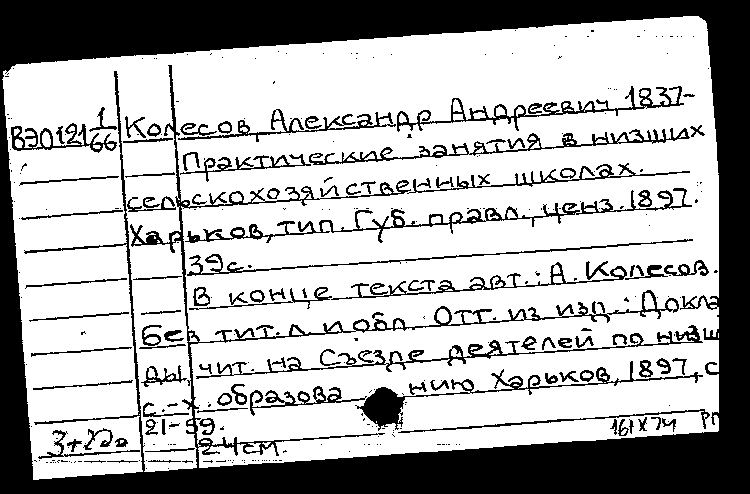 ВЭ0121 1/66 Колесов, Александр Андреевич, 1837-
Практические занятия в низших
сельскохозяйственных школах.
Харьков, тип. Губ. правл., ценз. 1897.
39с.
В конце текста авт.: А. Колесов.
Без тит. л. и обл. Отт. из изд.: Докла
ды, чит. на Съезде деятелей по низш
с.-х. образованию Харьков, 1897, с
21-59.
24см.
161X74 РП